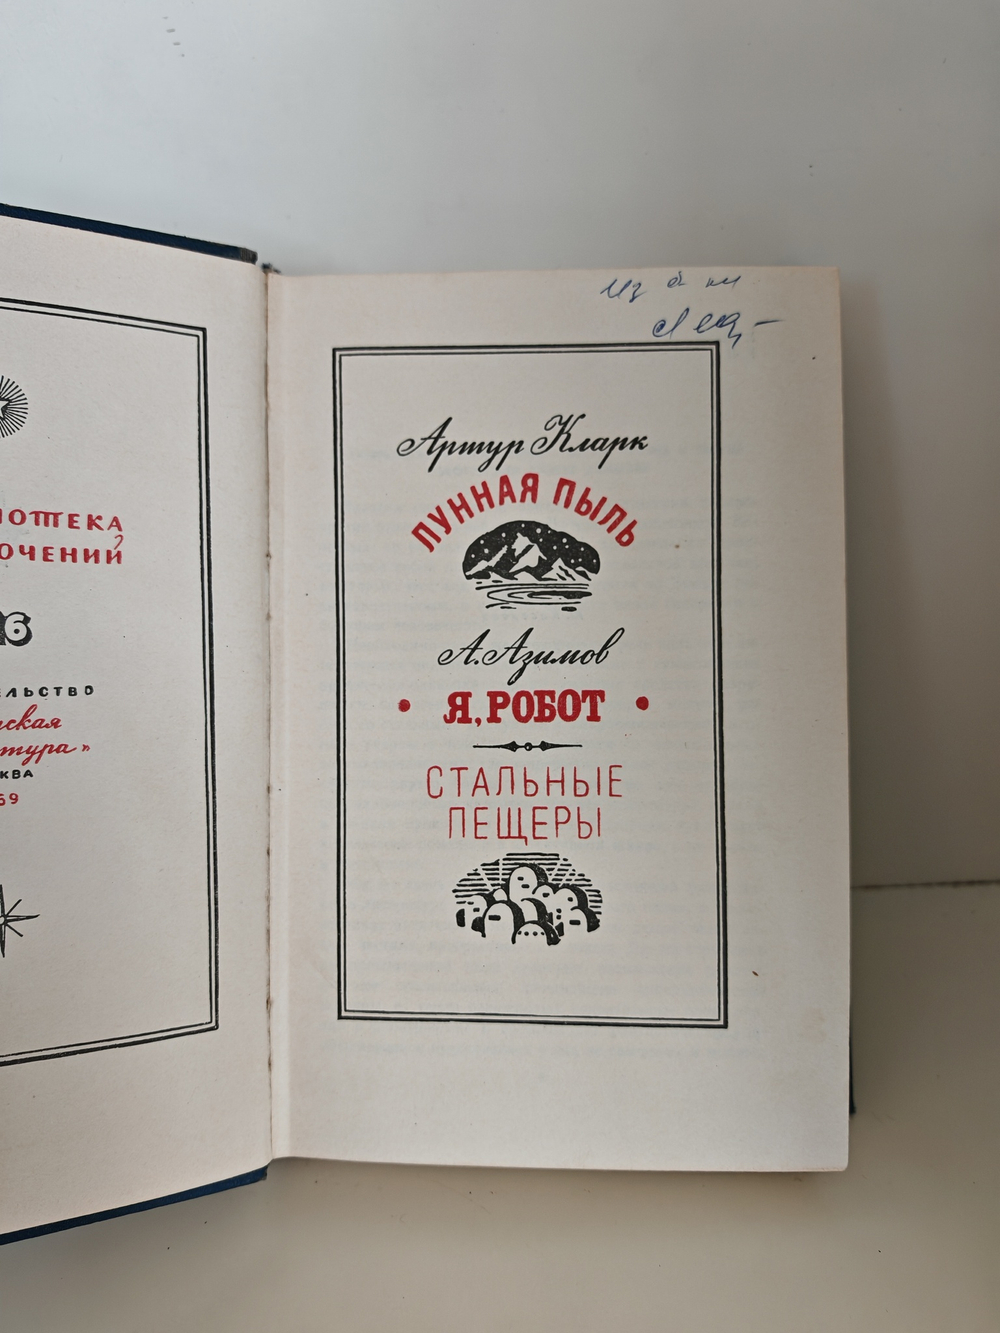 ИОТЕКА
ОЧЕНИЙ
2
16
ЕЛЬСТВО
ская
тура"
КВА
69
Артур Кларк
ЛУННАЯ ПЫЛЬ
А. Азимов
• Я, РОБОТ •
СТАЛЬНЫЕ
ПЕЩЕРЫ